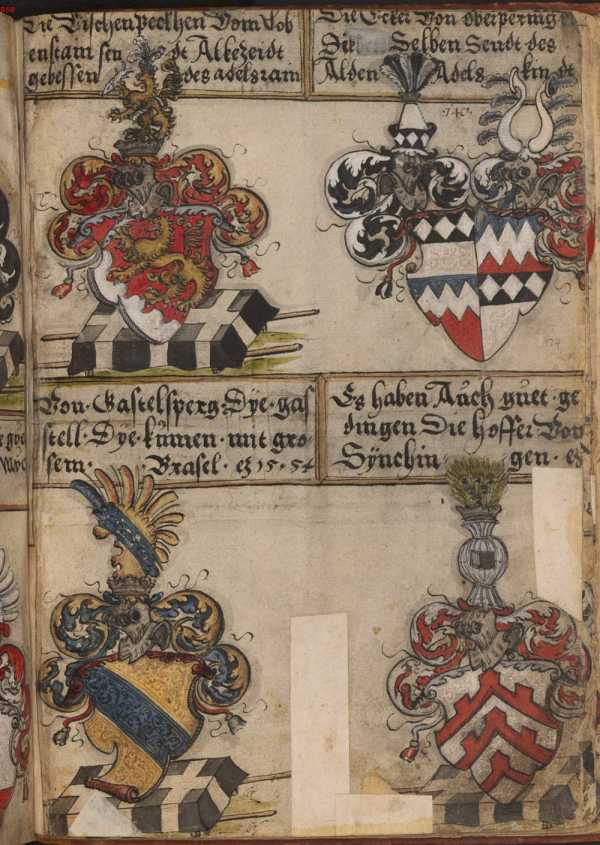 Die Eischenpeckhen Vom Lob
enstain sen dt Altezeidt
gebessen des adels rain
Die Ecker Von oberpering
Die Selben Sendt des
Alden Adels kindt
·740·
Von · Gastelsperg · Dÿe · gas
stell · Dÿe · kůmen · mit gro-
sem · Brasel · ez 15 · 54
Es haben Aůch gůet · ge
dingen Die Hoffer Von
Sÿnchin gen · ez